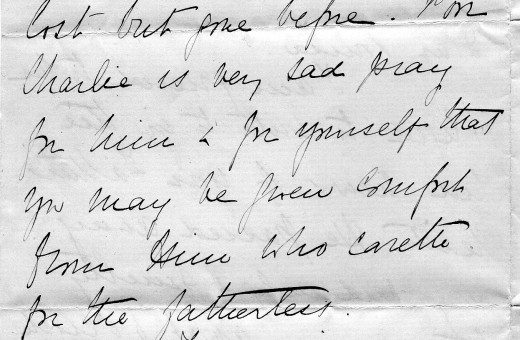 lost but gone before. Poor
Charlie is very sad pray
for him & for yourself that
you may be given comfort
from Him who careth
for the fatherless.